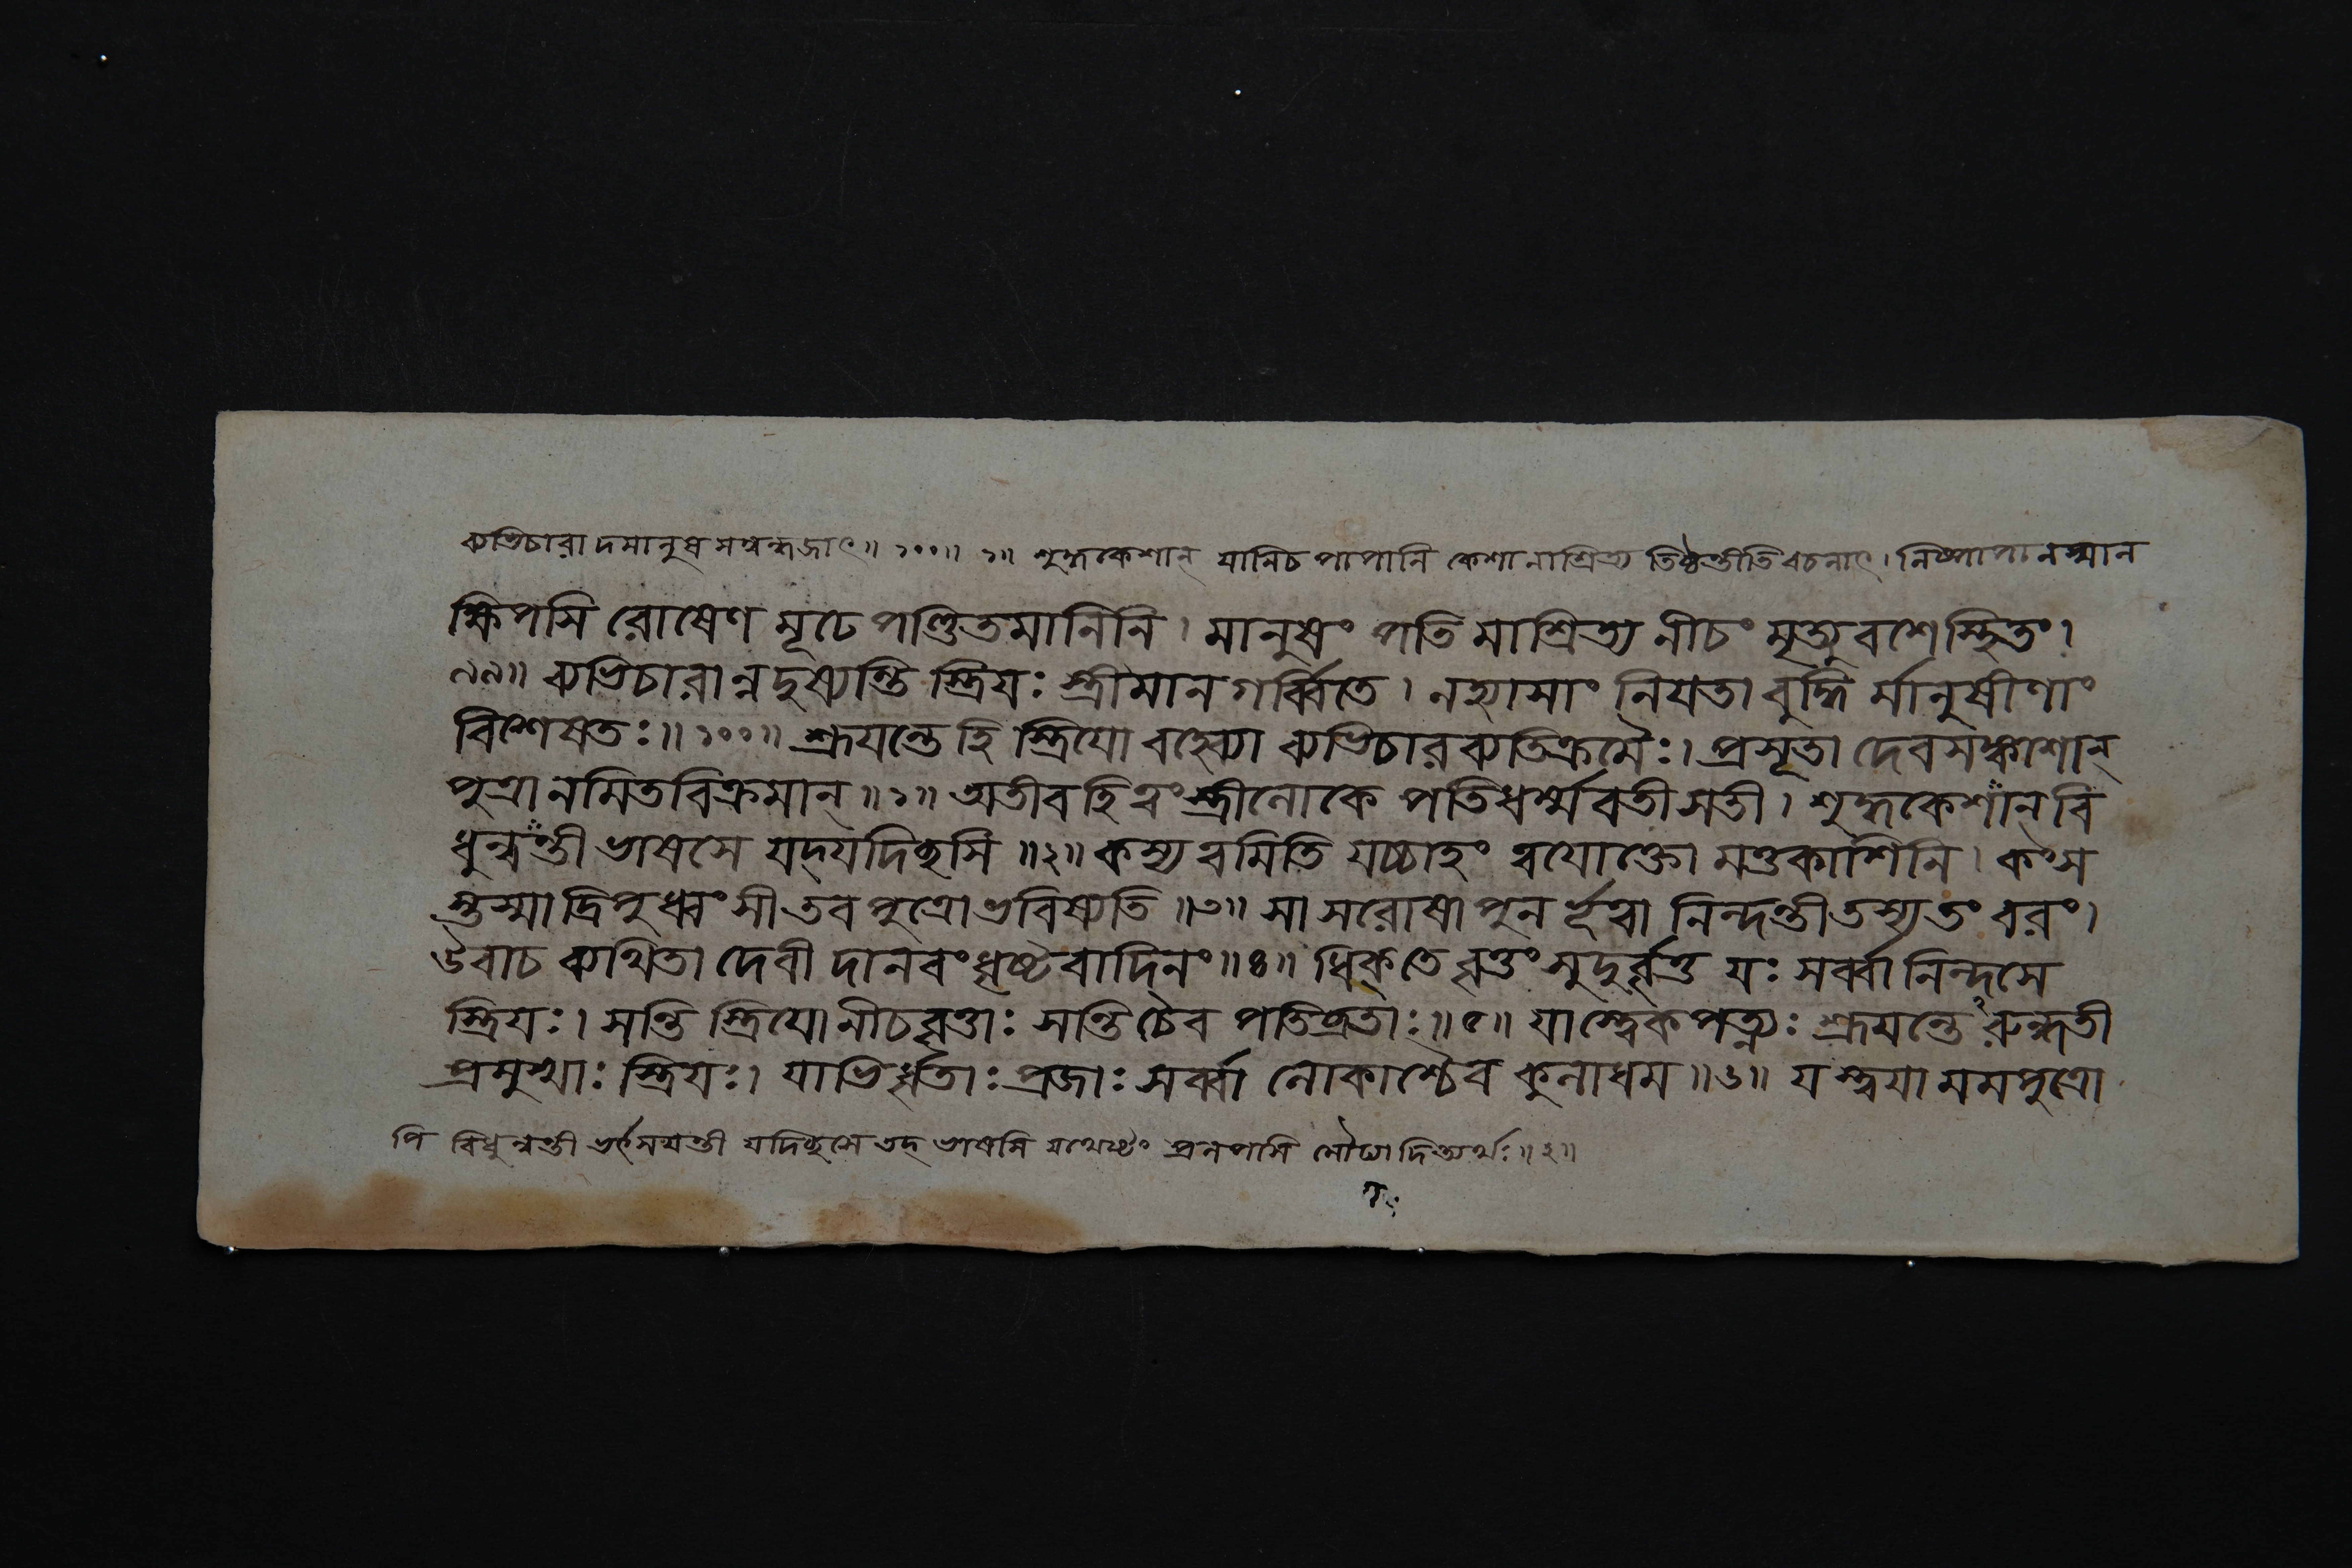 ব্যভিচারাদমানুষসম্বন্ধজাৎ॥ ১০০॥ ১॥ শুদ্ধকেশান্ যানি চ পাপানি কেশানাশ্রিত্য তিষ্ঠন্তীতি বচনাৎ। নিষ্পাপানস্মান
ক্ষিপসি রোষেণ মূঢে পণ্ডিতমানিনি। মানুষং পতিমাশ্রিত্য নীচং মৃত্যুবশেস্থিতং।
৯৯॥ ব্যভিচারান্নদুষ্যন্তি স্ত্রিযঃ স্ত্রীমানগর্ব্বিতে। নহ্যাসাং নিযতা বুদ্ধি র্মানুষীণাং
বিশেষতঃ॥ ১০০॥ শ্রূযন্তে হি স্ত্রিযো বহ্ব্যো ব্যভিচারব্যতিক্রমৈঃ। প্রসূতা দেবসঙ্কাশান্
পুত্রানমিতবিক্রমান্॥ ১॥ অতীব হি ত্বং স্ত্রীলোকে পতিধর্ম্মবতী সতী। শুদ্ধকেশান্ বি
ধুন্বন্তী ভাষসে যদ্যদিচ্ছসি॥ ২॥ কস্য ত্বমিতি যচ্চাহং ত্বযোক্তো মত্তকাশিনি। কংস
স্তস্মাদ্রিপুধ্বংসী তব পুত্রো ভবিষ্যতি॥ ৩॥ সা সরোষা পুনর্ভূত্বা নিন্দন্তী তস্য তং বরং।
উবাচ ব্যথিতা দেবী দানবং ধৃষ্টবাদিনং॥ ৪॥ ধিক্ তে বৃত্তং সুদুর্বৃত্ত যঃ সর্ব্বা নিন্দসে
স্ত্রিযঃ। সন্তি স্ত্রিযো নীচবৃত্তাঃ সন্তি চৈব পতিব্রতাঃ॥ ৫॥ যাস্ত্বেকপত্ন্যঃ শ্রূযন্তে ঽরুন্ধতী
প্রমুখাঃ স্ত্রিযঃ। যাভির্ধৃতাঃ প্রজাঃ সর্ব্বা লোকাশ্চৈব কুলাধম॥ ৬॥ যস্ত্বযা মম পুত্রো
পি বিধুন্বন্তী ভর্ৎসযন্তী যদিচ্ছসে তদ্ ভাষসি যথেষ্টং প্রলপসি মৌঢ্যাদিত্যর্থঃ॥ ২॥